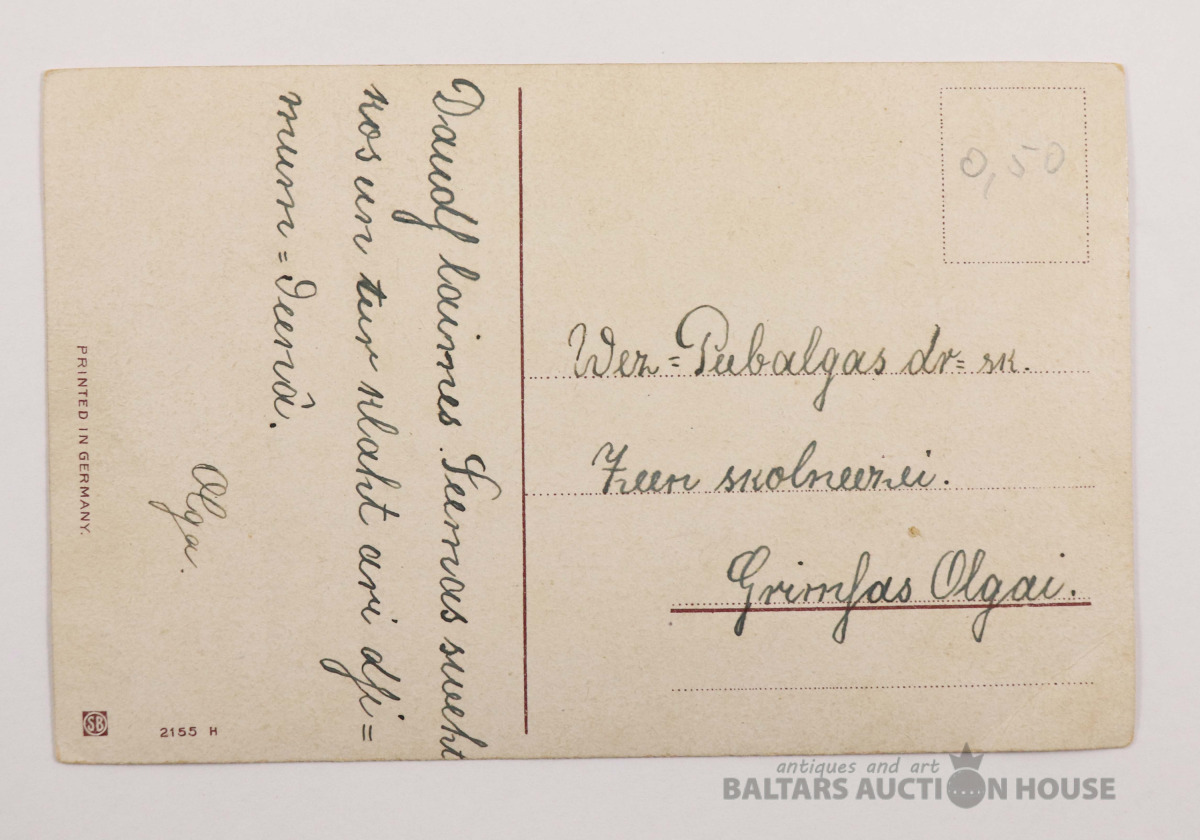 Daudſ laimes Seemas sweht
kos un tur klaht ari dſi=
mum=deenâ.
Olga.
PRINTED IN GERMANY.
SB
2155 H
0,50
Wez=Peebalgas dr=sk.
Zeen skolneezei.
Grimſas Olgai.
antiques and art
BALTARS AUCTION HOUSE